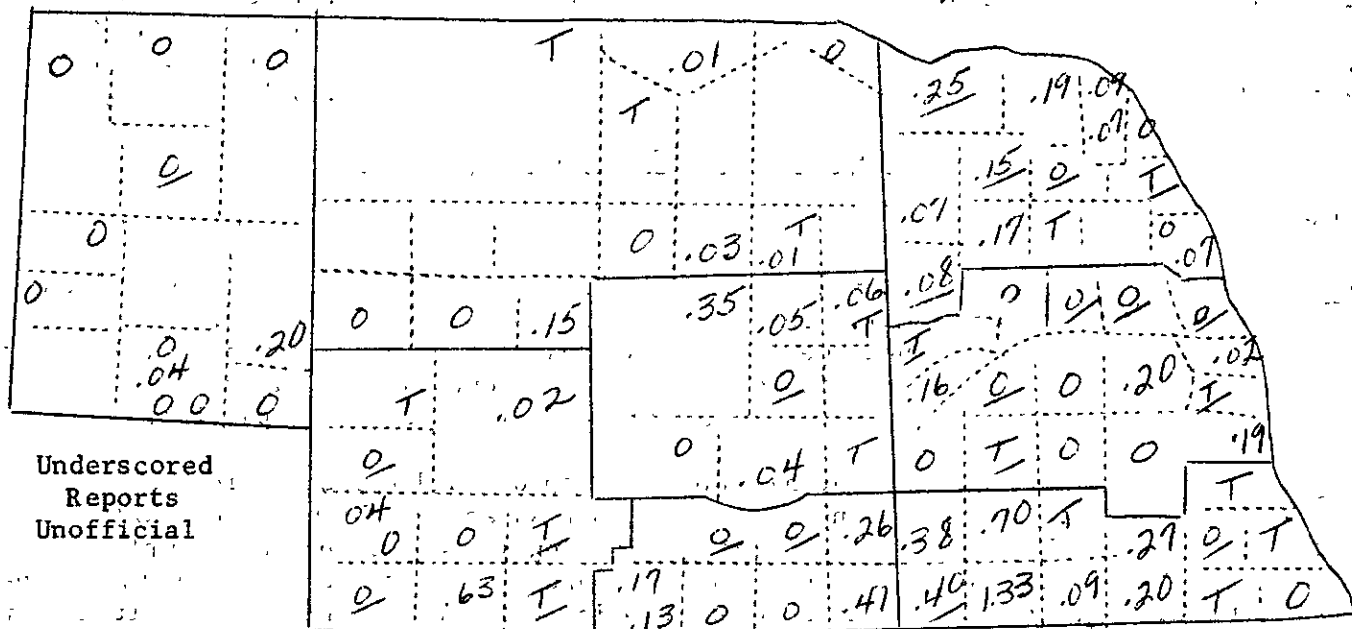 0 0 .0 T .01 0
.25 .19 .09
T .07 0
0 .15 0 T
0 0 .03 T .01 .07 .17 T 0 .07
0 0 0 .15 .35 .05 .06 T .08 0 0 0 0
.0 .20 T .02
.04 T .02 0 .16 0 0 .20 T
0 0 0
0 0 .04 T 0 T 0 0 .19
Underscored
Reports
Unofficial
T
04 0 0 T 0 0 .26 .38 .70 T .27 0 T
0 .63 T .17 .13 0 0 .41 .40 1.33 .09 .20 T 0